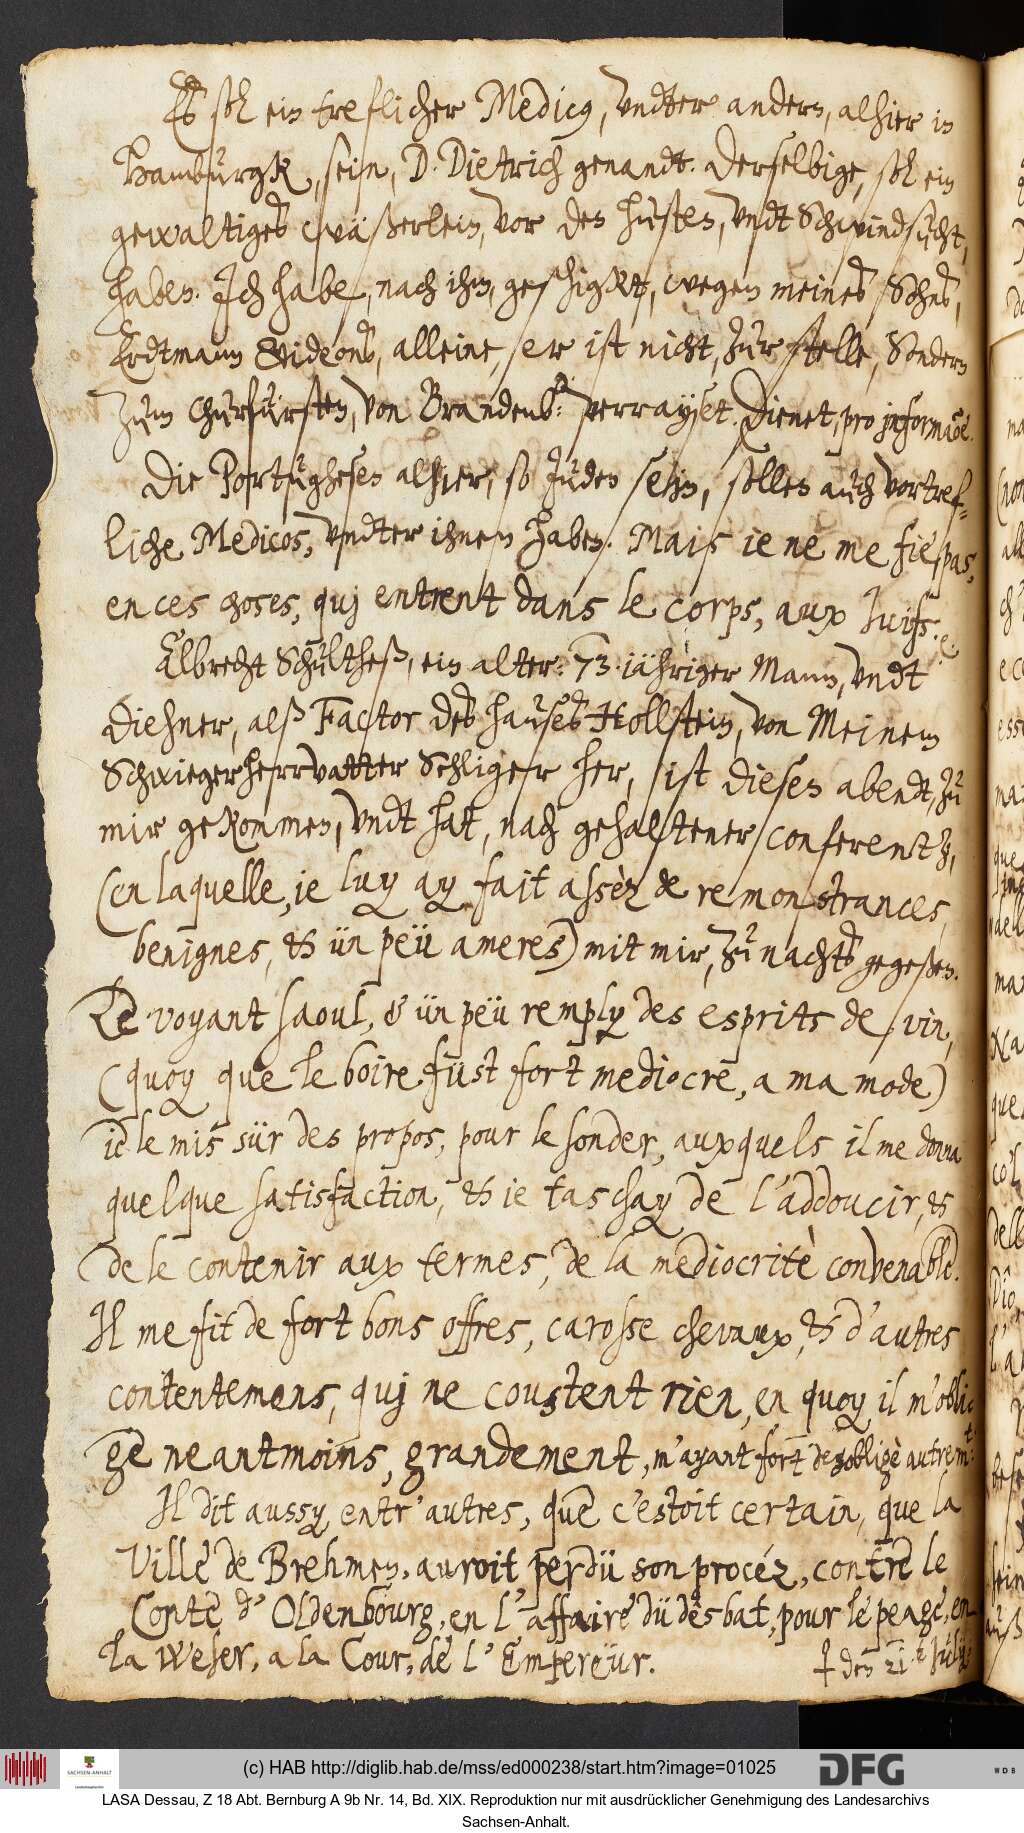 Es sol ein treflicher Medicus, vndter andern, alhier in
Hamburgk, sein, D. Dietrich genandt. Derselbige, sol ein
gewaltiges wäßerlein, vor den husten, vndt Schwindsucht,
haben. Ich habe, nach ihm, geschigkt, wegen meines Sohns,
Erdtmann Gideons, alleine, er ist nicht, zur stelle, Sondern
zum Churfürsten, von Brandenb: verrayset. Dienet, pro informaõe.
Die Portughesen alhier, so Juden sein, sollen auch vortref-
liche Medicos, vndter ihnen haben. Mais ie ne me fie pas,
en ces choses, quj entrent dans le corps, aux Juifs. 
Albrecht Schultheß, ein alter: 73. iähriger Mann, vndt
Diehner, alß Factor des hauses Hollstein, von Meinem
Schwiegerherrvattter Sehligerr her, ist diesen abendt, zu
mir gekommen, vndt hat, nach gehaltener conferentz,
(en laquelle, ie luy ay fait assèz de remonstrances,
benignes, et ün peü ameres) mit mir, zu nachts gegeßen.
Le voyant saoul, & ün peü remply des esprits de vin,
(quoy que le boire füst fort mediocre, a ma mode)
ie le mis sür des propos, pour le sonder, auxquels il me donna
quelque satisfaction, et ie taschay de l'addoucir, et
de le contenir aux termes, de la mediocritè convenable.
Il me fit de fort bons offres, carosse chevaux, et d'autres
contentemens, quj ne coustent rien, en quoy il m'obli-
ge neantmoins, grandement, m'ayant fort desobligè autrem̃t:
Il dit aussy, entr'autres, que c'estoit certain, que la
Ville de Brehmen, auroit perdü son procéz, contre le
Conte d'Oldenbourg, en l'affaire dü desbat, pour le peage, en
la Weser, a la Cour, de l'Empereür. ☨ den 21t Julij
(c) HAB http://diglib.hab.de/mss/ed000238/start.htm?image=01025
SACHSEN-ANHALT
DFG
WDB
LASA Dessau, Z 18 Abt. Bernburg A 9b Nr. 14, Bd. XIX. Reproduktion nur mit ausdrücklicher Genehmigung des Landesarchivs
Sachsen-Anhalt.